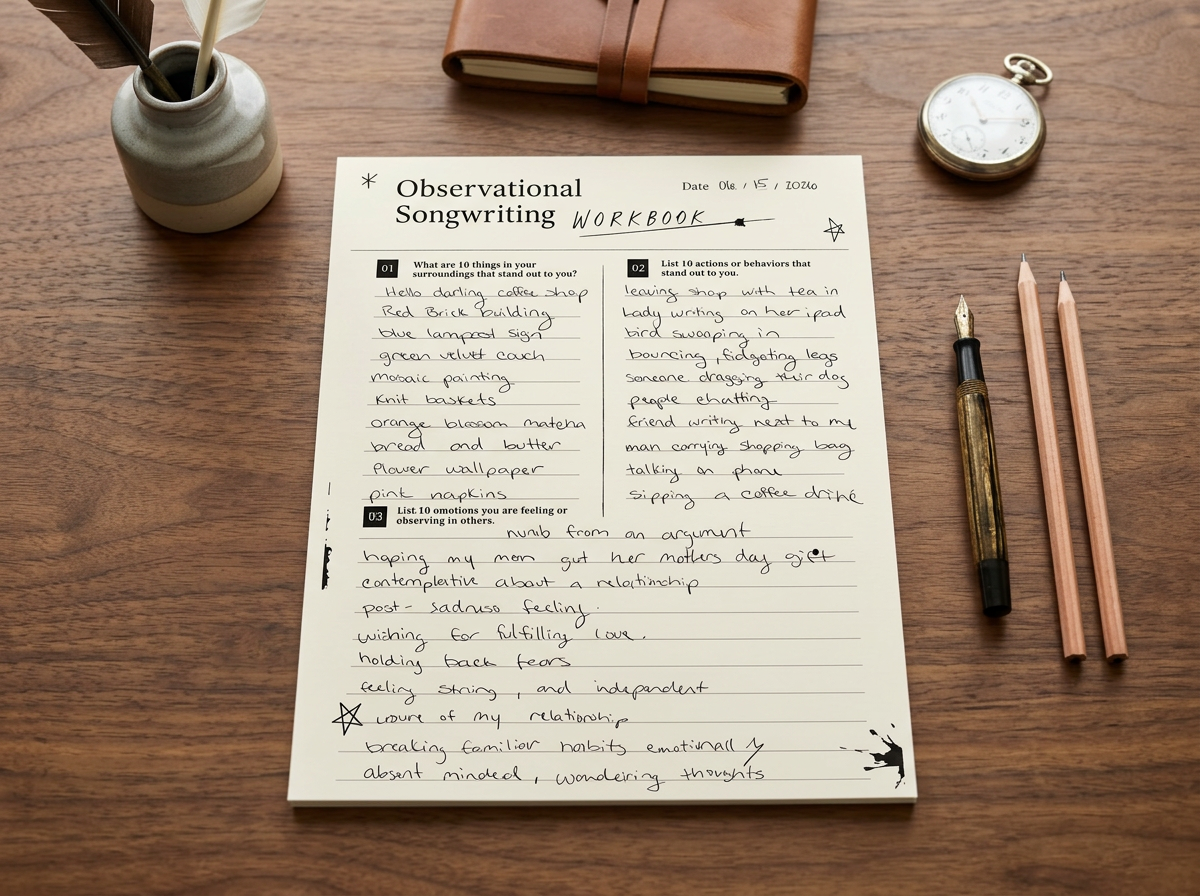 Observational
Songwriting WORKBOOK
Date 06 / 15 / 2026
01 What are 10 things in your
surroundings that stand out to you?
Hello darling coffee shop
Red Brick building
blue lampost sign
green velvet couch
mosaic painting
Knit baskets
orange blossom matcha
bread and butter
Flower wallpaper
pink napkins
02 List 10 actions or behaviors that
stand out to you.
leaving shop with tea in
Lady writing on her ipad
bird swooping in
bouncing, fidgeting legs
someone dragging their dog
people chatting
friend writing next to me
man carrying shopping bag
talking on phone
sipping a coffee drink
03 List 10 omotions you are feeling or
observing in others.
numb from an argument
hoping my mom got her mothers day gift
contemplative about a relationship
post- sadness feeling.
wishing for fulfilling love.
holding back tears
feeling strong, and independent
unsure of my relationship
breaking familiar habits emotionally
absent minded, wondering thoughts